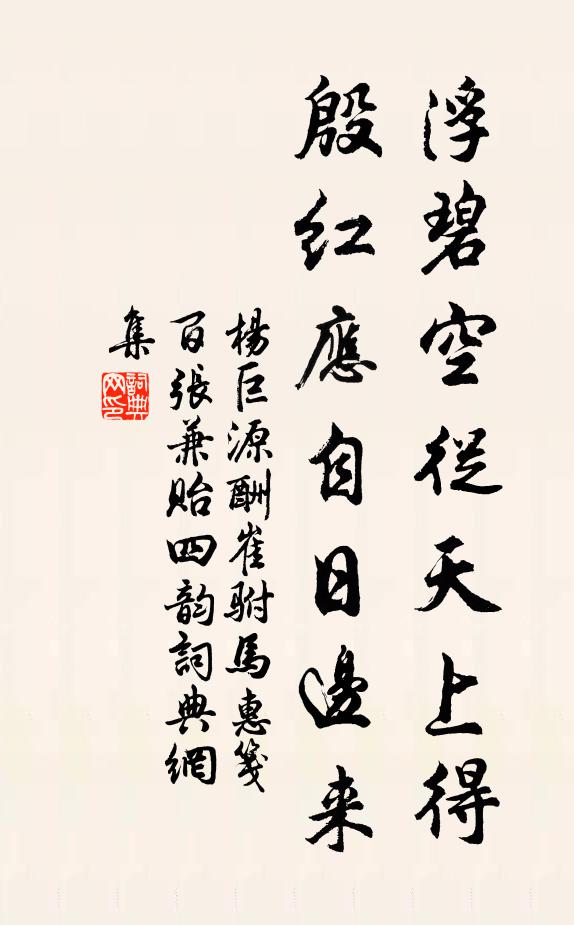 浮碧空從天上得
殷紅應自日邊来
楊巨源酬崔駙馬惠箋
百張兼貽四韵詞典網
集
詞典
网印